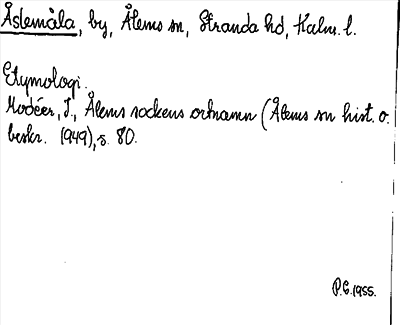 Åslemåla, by, Ålems sn, Stranda hd, Kalm. l.
Etymologi.
Modéer, I., Ålems sockens ortnamn (Ålems sn hist. o.
beskr. 1949), s. 80.
P.G. 1955.